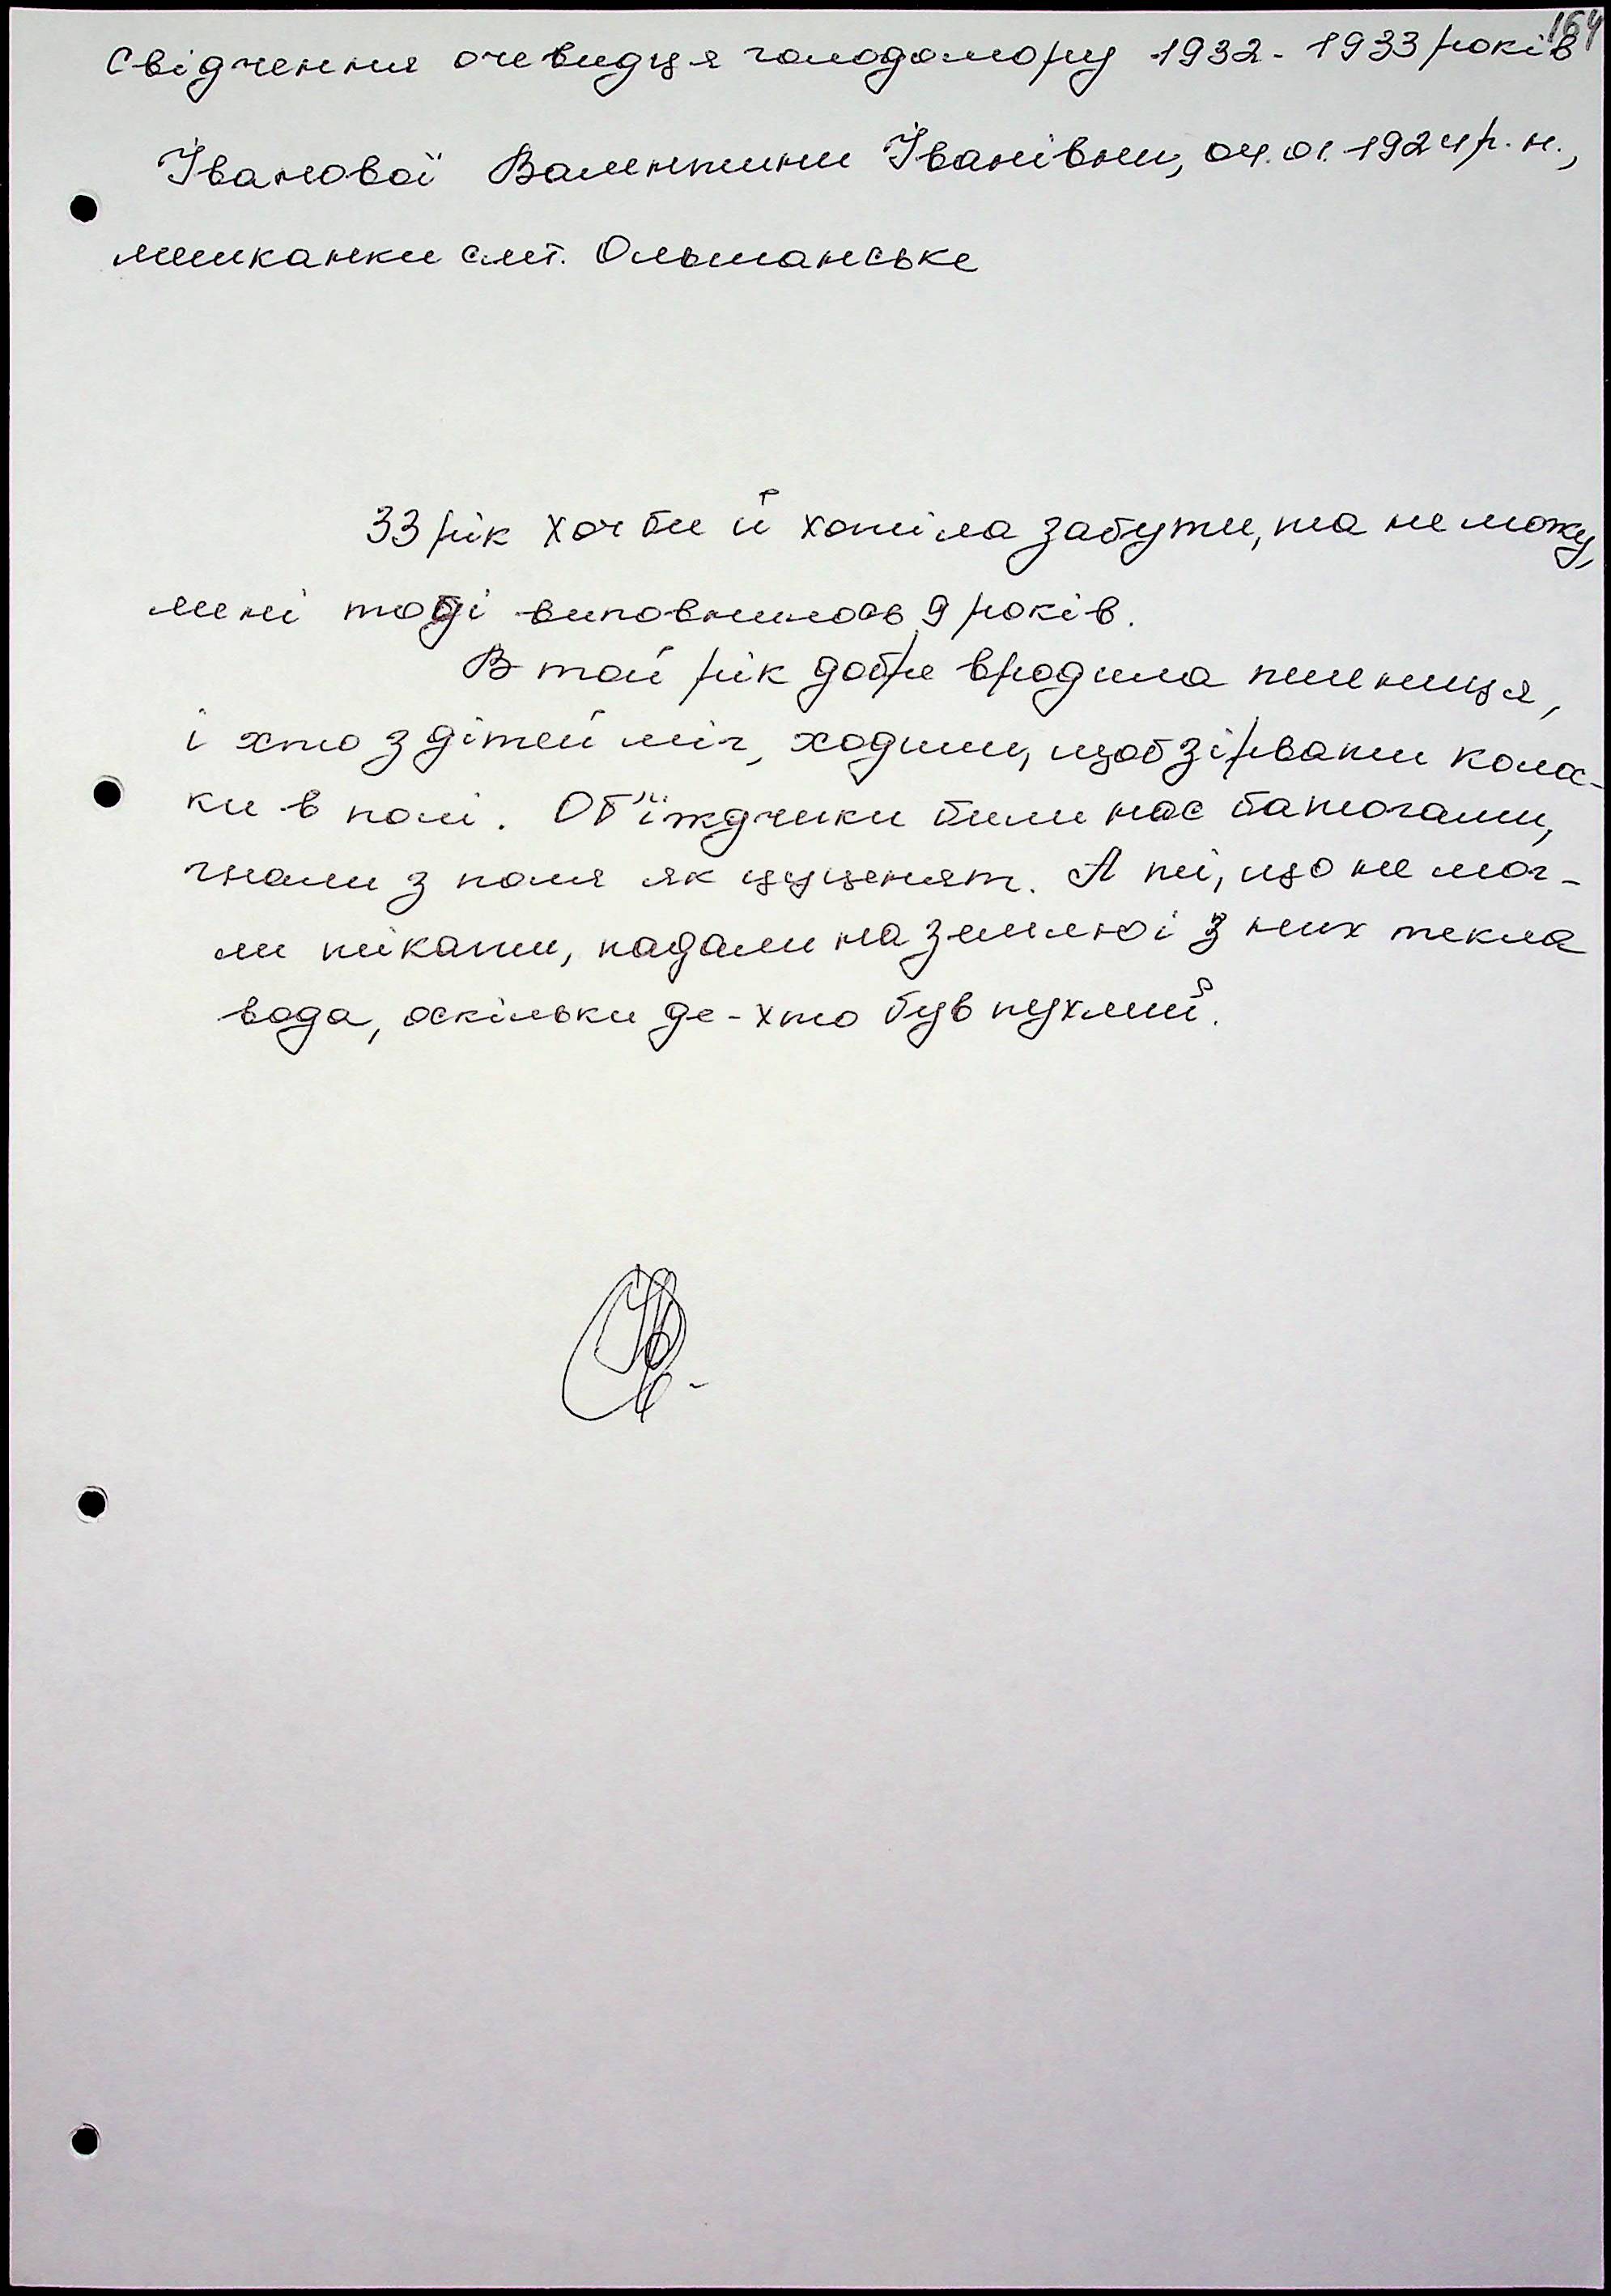 164
Свідчення очевидця голодомору 1932-1933 років
Іванової Валентини Іванівни, 04.01.1924 р.н.,
мешканки смт. Ольшанське
33 рік хоч би й хотіла забути, та не можу,
мені тоді виповнилось 9 років.
В той рік добре вродила пшениця,
і хто з дітей міг, ходили, щоб зірвати колос-
ки в полі. Об'їждчики били нас батогами,
гнали з поля як цуценят. А ті, що не мог-
ли тікати, падали на землю і з них текла
вода, оскільки де-хто був пухлий.